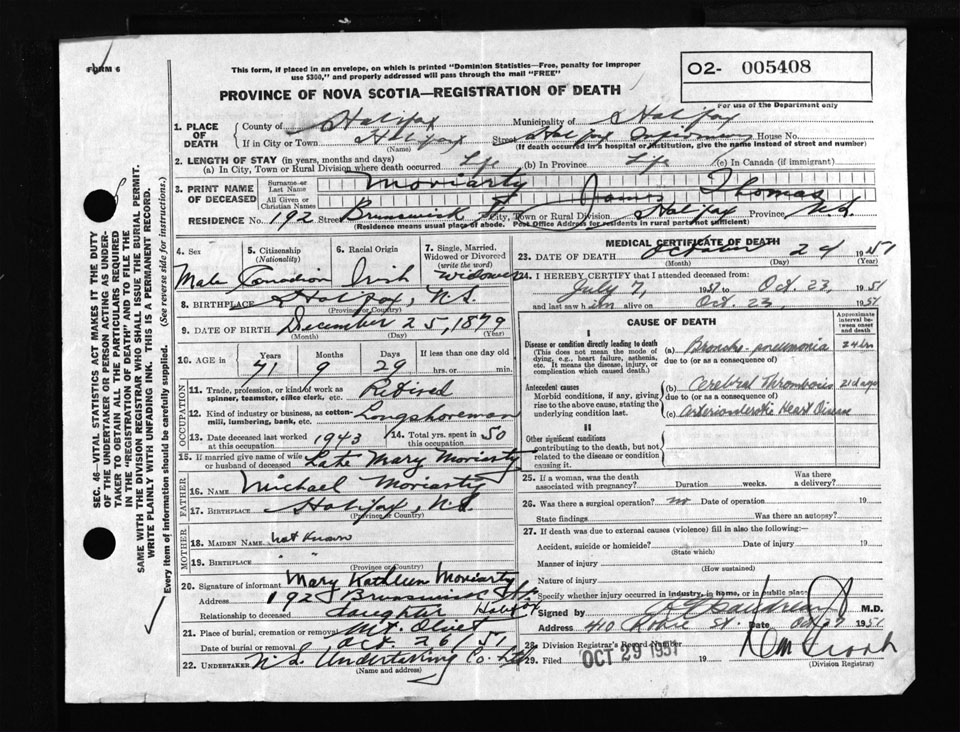 FORM 6
This form, if placed in an envelope, on which is printed "Dominion Statistics—Free, penalty for improper
use $300," and properly addressed will pass through the mail "FREE"
O2- 005408
For use of the Department only
PROVINCE OF NOVA SCOTIA—REGISTRATION OF DEATH
1. PLACE OF DEATH
County of Halifax Municipality of Halifax
If in City or Town Halifax Street Halifax Infirmary House No.
(Name) (If death occurred in a hospital or institution, give the name instead of street and number)
2. LENGTH OF STAY (in years, months and days)
(a) In City, Town or Rural Division where death occurred Life (b) In Province Life (c) In Canada (if immigrant)
3. PRINT NAME OF DECEASED
Surname or Last Name Moriarty
All Given or Christian Names James Thomas
RESIDENCE No. 192 Street Brunswick St City, Town or Rural Division Halifax Province N.S.
(Residence means usual place of abode. Post Office Address for residents in rural parts not sufficient)
4. Sex
Male
5. Citizenship
(Nationality)
Canadian
6. Racial Origin
Irish
7. Single, Married,
Widowed or Divorced
(write the word)
Widower
8. BIRTHPLACE Halifax, N.S.
(Province or Country)
9. DATE OF BIRTH December 25, 1879
(Month) (Day) (Year)
10. AGE in
Years Months Days If less than one day old
71 9 29 hrs. or min.
OCCUPATION
11. Trade, profession, or kind of work as
spinner, teamster, office clerk, etc. Retired
12. Kind of industry or business, as cotton-
mill, lumbering, bank, etc. Longshoreman
13. Date deceased last worked
at this occupation 1943
14. Total yrs. spent in
this occupation 50
15. If married give name of wife
or husband of deceased Late Mary Moriarty
FATHER
16. NAME Michael Moriarty
17. BIRTHPLACE Halifax, N.S.
(Province or Country)
MOTHER
18. MAIDEN NAME not known
19. BIRTHPLACE " "
(Province or Country)
20. Signature of informant Mary Kathleen Moriarty
Address 192 Brunswick St. Halifax
Relationship to deceased daughter
21. Place of burial, cremation or removal Mt. Olivet
Date of burial or removal Oct. 26/51
22. UNDERTAKER N.S. Undertaking Co. Ltd
(Name and address)
MEDICAL CERTIFICATE OF DEATH
23. DATE OF DEATH October 24 1951
(Month) (Day) (Year)
24. I HEREBY CERTIFY that I attended deceased from:
July 7, 1951 to Oct. 23, 1951
and last saw him alive on Oct. 23 1951
CAUSE OF DEATH
Approximate interval between onset and death
I
Disease or condition directly leading to death
(This does not mean the mode of
dying, e.g., heart failure, asthenia,
etc. It means the disease, injury, or
complication which caused death.)
(a) Broncho-pneumonia 24 hrs
due to (or as a consequence of)
Antecedent causes
Morbid conditions, if any, giving
rise to the above cause, stating the
underlying condition last.
(b) Cerebral Thrombosis 21 days
due to (or as a consequence of)
(c) Arteriosclerotic Heart Disease
II
Other significant conditions
contributing to the death, but not
related to the disease or condition
causing it.
25. If a woman, was the death
associated with pregnancy? Duration weeks. Was there
a delivery?
26. Was there a surgical operation? no Date of operation 19
State findings Was there an autopsy?
27. If death was due to external causes (violence) fill in also the following:
Accident, suicide or homicide? Date of injury 19
(State which)
Manner of injury
(How sustained)
Nature of injury
Specify whether injury occurred in industry, in home, or in public place
Signed by M.D.
Address 410 Robie St. Date Oct 27 1951
28. Division Registrar's Record Number
29. Filed OCT 29 1951 19
(Division Registrar)
SEC. 46—VITAL STATISTICS ACT MAKES IT THE DUTY
OF THE UNDERTAKER OR PERSON ACTING AS UNDER-
TAKER TO OBTAIN ALL THE PARTICULARS REQUIRED
IN THE "REGISTRATION OF DEATH" AND TO FILE THE
SAME WITH THE DIVISION REGISTRAR WHO SHALL ISSUE THE BURIAL PERMIT.
WRITE PLAINLY WITH UNFADING INK. THIS IS A PERMANENT RECORD.
Every item of information should be carefully supplied. (See reverse side for instructions.)